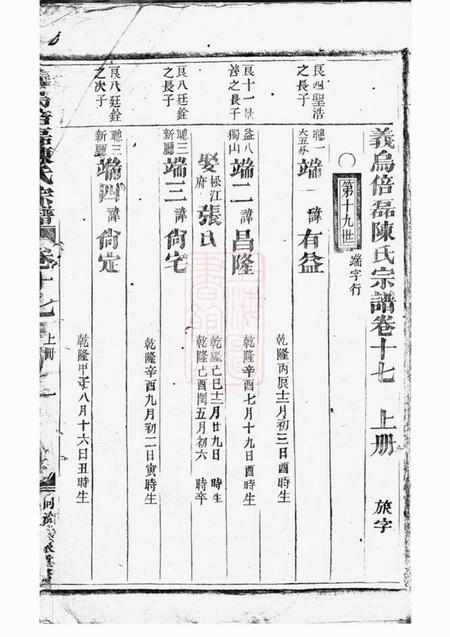 義烏倍磊陳氏宗譜卷十七 上册 旅字
第十九世 端字行
良四聖浩之長子
聰一
端一 諱有益
乾隆丙辰十二月初三日酉時生
良十一
善之長子
益八獨山
端二 諱昌隆
乾隆辛酉七月十九日酉時生
娶松江府張氏
乾隆己巳十二月廿九日 時生
乾隆己酉閏五月初六 時卒
良八廷銓之長子
聰三新廳
端三 諱尙宅
乾隆辛酉九月初二日寅時生
良八廷銓之次子
聰三新廳
端四 諱尙定
八月十六日丑時生
陳氏宗譜 卷十七 上册 一